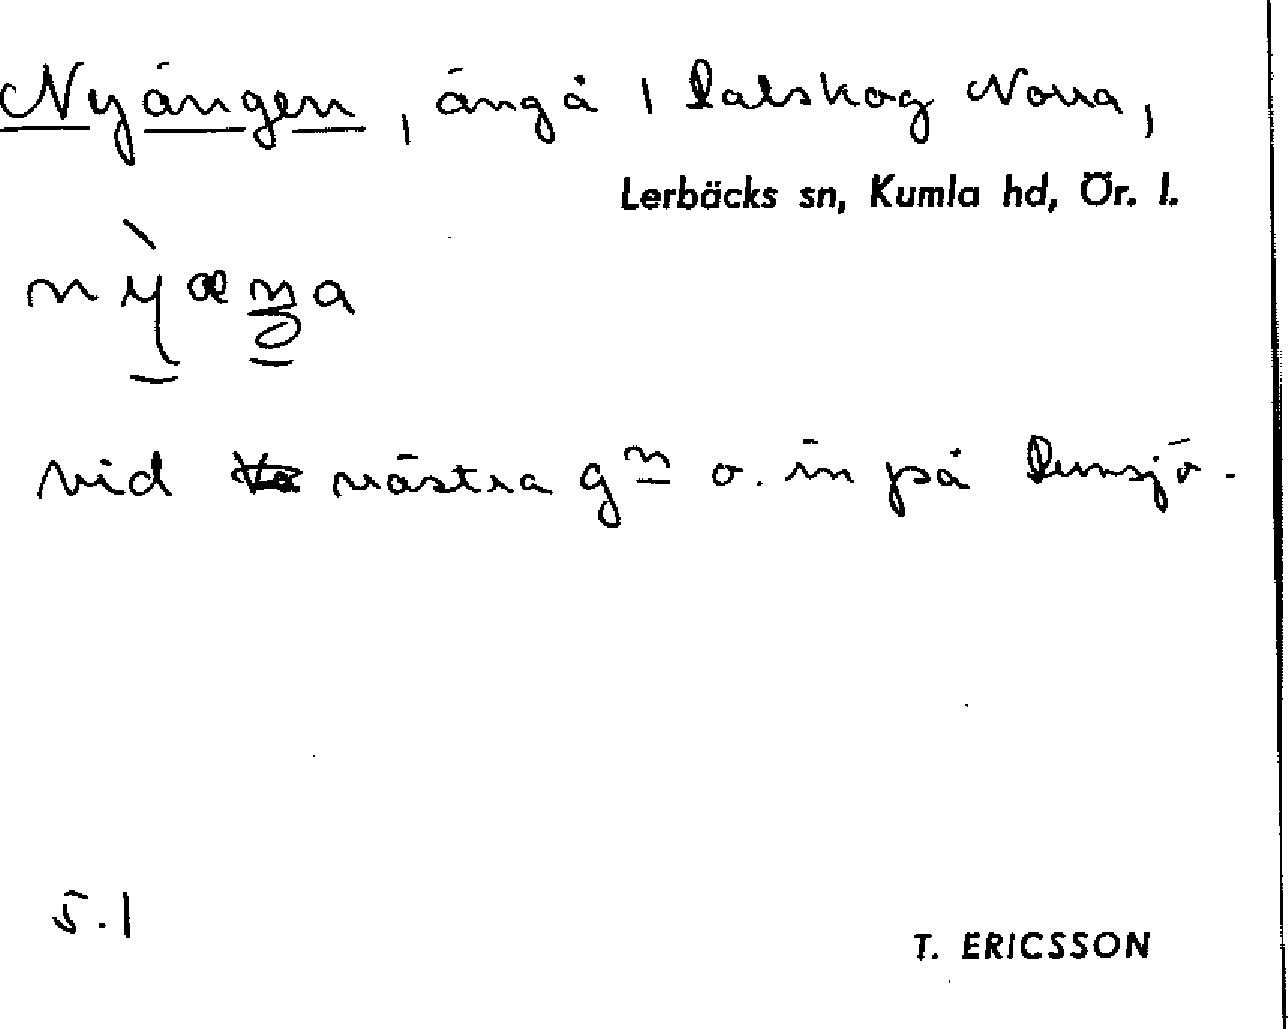 Nyängen, ängå 1 Dalskog Norra,
Lerbäcks sn, Kumla hd, Ör. l.
vid västra gn o. in på
5.1
T. ERICSSON